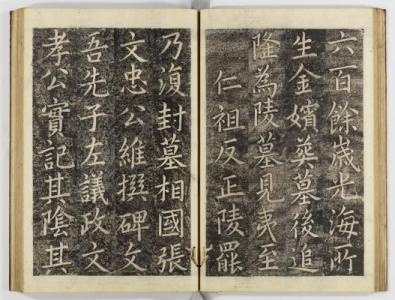 六百餘歲光海所
生金嬪葬墓後追
隆為陵墓見夷至
仁祖反正陵罷
乃復封墓相國張
文忠公維撰碑文
吾先子左議政文
孝公實記其陰其